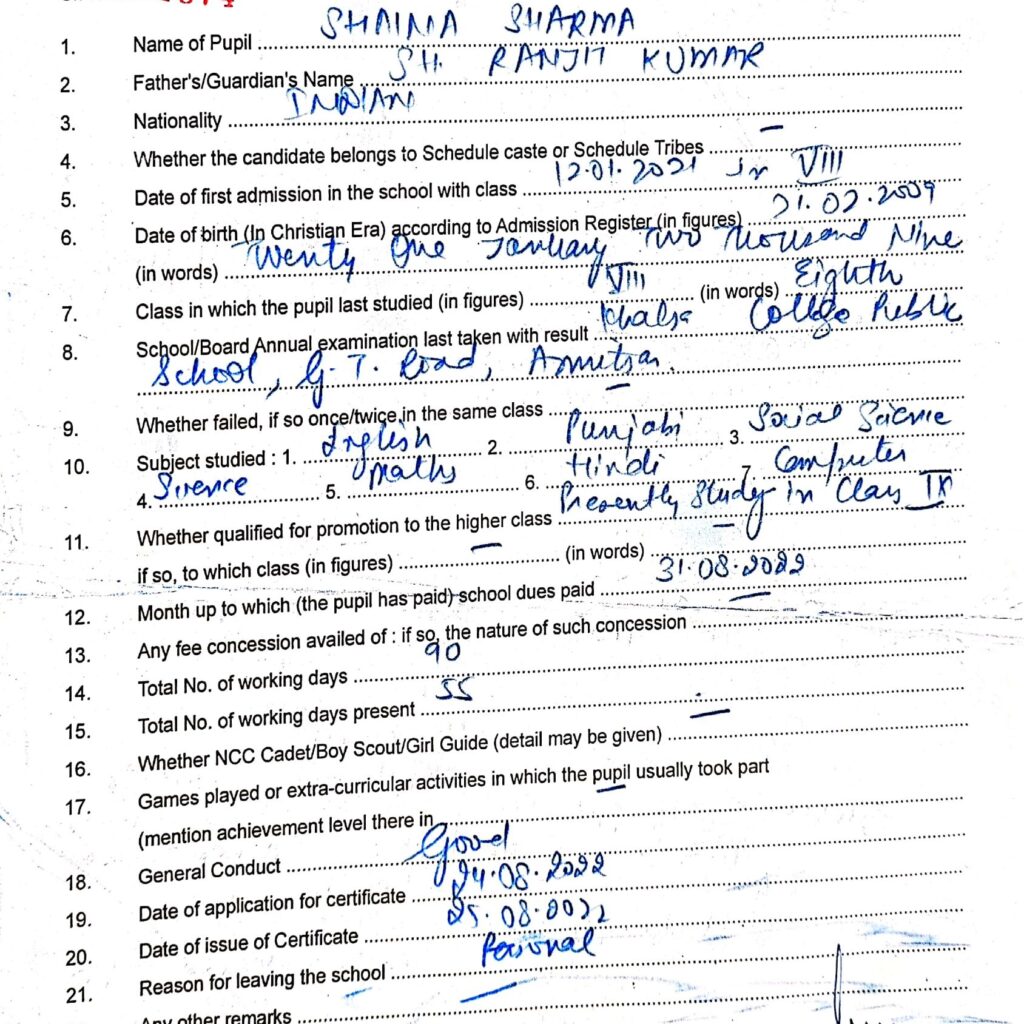 1. Name of Pupil SHAINA SHARMA
2. Father's/Guardian's Name SH. RANJIT KUMAR
3. Nationality INDIAN
4. Whether the candidate belongs to Schedule caste or Schedule Tribes —
5. Date of first admission in the school with class 12.01.2021 in VIII
6. Date of birth (In Christian Era) according to Admission Register (in figures) 21.02.2009
(in words) Twenty One January Two Thousand Nine
7. Class in which the pupil last studied (in figures) VIII (in words) Eighth
8. School/Board Annual examination last taken with result Khalsa College Public
School, G.T. Road, Amritsar.
9. Whether failed, if so once/twice in the same class —
10. Subject studied : 1. English 2. Punjabi 3. Social Science
4. Science 5. Maths 6. Hindi 7. Computer
11. Whether qualified for promotion to the higher class Presently Study in Class IX
if so, to which class (in figures) — (in words) —
12. Month up to which (the pupil has paid) school dues paid 31.08.2022
13. Any fee concession availed of : if so, the nature of such concession —
14. Total No. of working days 90
15. Total No. of working days present 55
16. Whether NCC Cadet/Boy Scout/Girl Guide (detail may be given) —
17. Games played or extra-curricular activities in which the pupil usually took part
(mention achievement level there in —
18. General Conduct Good
19. Date of application for certificate 24.08.2022
20. Date of issue of Certificate 25.08.2022
21. Reason for leaving the school Personal
Any other remarks —